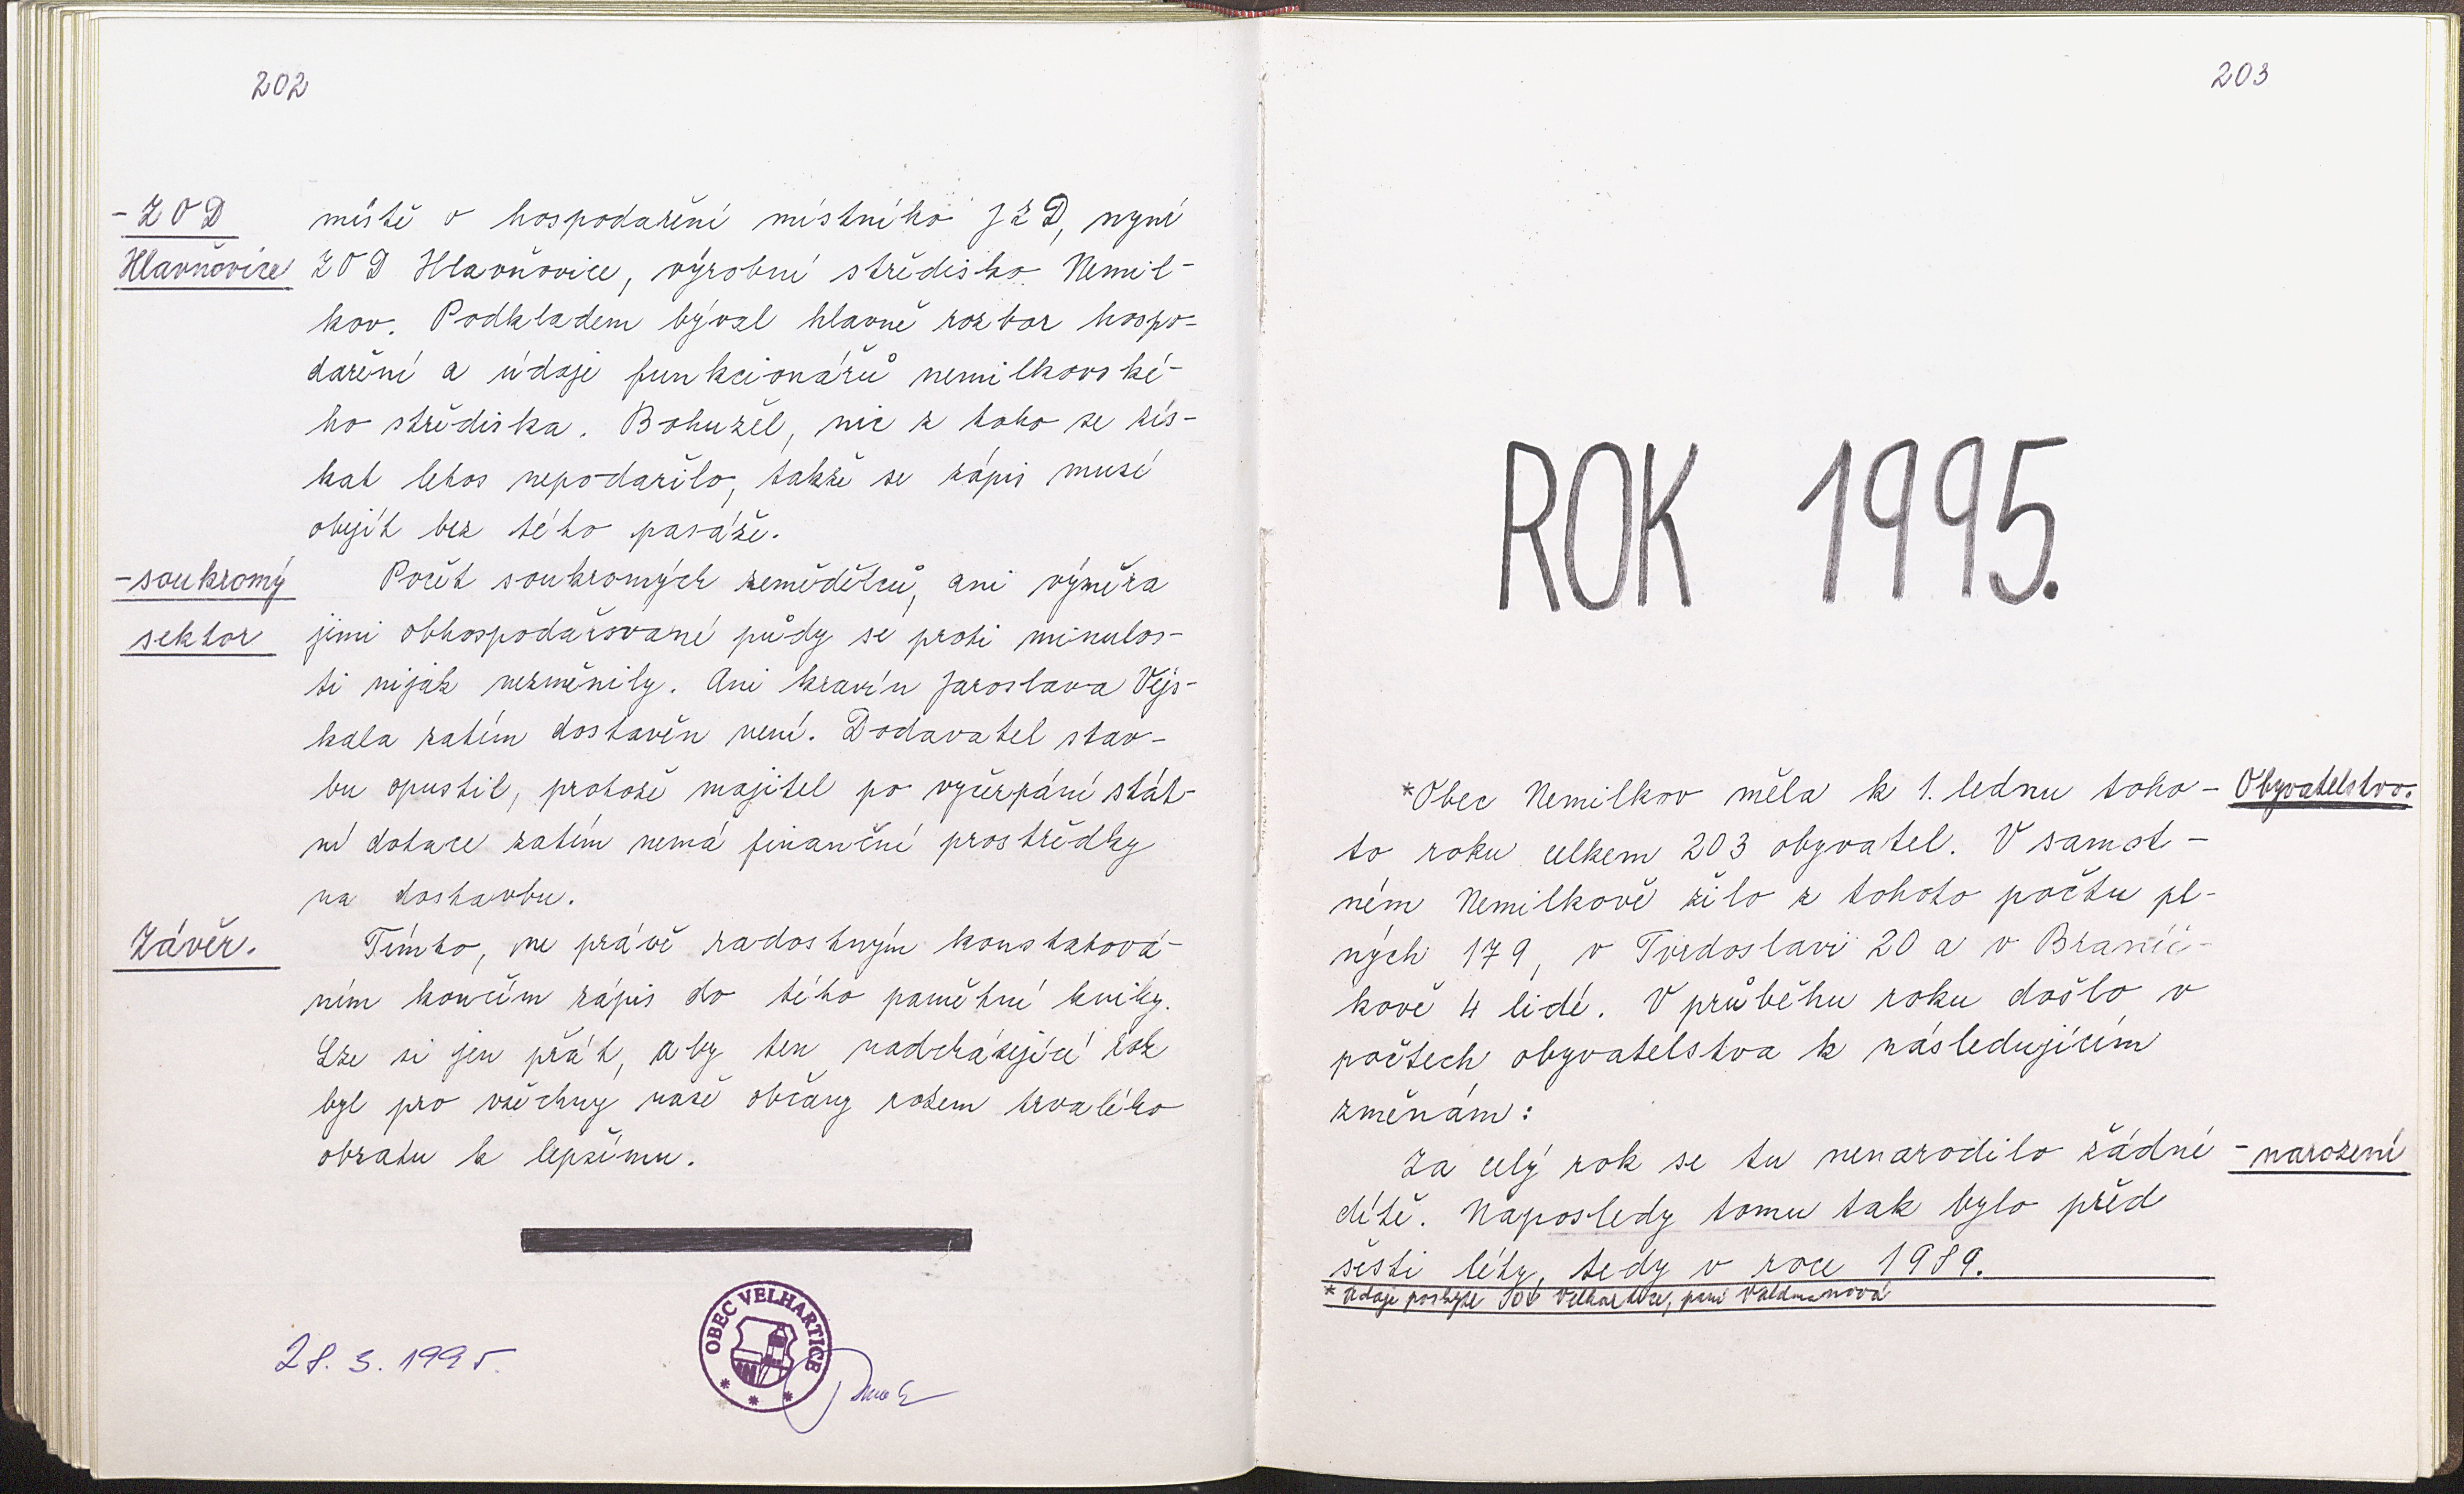 202
- ZOD
Hlavňovice
místě o hospodaření místního JZD, nyní
ZOD Hlavňovice, výrobní středisko Nemil-
kov. Podkladem býval hlavně rozbor hospo-
daření a údaje funkcionářů nemilkovské-
ho střediska. Bohužel, nic z toho se zís-
kat letos nepodařilo, takže se zápis musí
obejít bez této pasáže.
- soukromý
sektor
Počet soukromých zemědělců, ani výměra
jimi obhospodařované půdy se proti minulos-
ti nijak nezměnily. Ani kravín Jaroslava Vejs-
kala zatím dostavěn není. Dodavatel stav-
bu opustil, protože majitel po vyčerpání stát-
ní dotace zatím nemá finanční prostředky
na dostavbu.
Závěr.
Tímto, ne právě radostným konstatová-
ním končím zápis do této pamětní knihy.
Lze si jen přát, aby ten nadcházející rok
byl pro všechny naše občany rokem trvalého
obratu k lepšímu.
28. 3. 1995.
OBEC VELHARTICE
203
ROK 1995.
Obyvatelstvo.
*Obec Nemilkov měla k 1. lednu toho-
to roku celkem 203 obyvatel. V samot-
ném Nemilkově žilo z tohoto počtu pl-
ných 179, v Tvrdoslavi 20 a v Branič-
kově 4 lidé. V průběhu roku došlo v
počtech obyvatelstva k následujícím
změnám:
- narození
Za celý rok se tu nenarodilo žádné
dítě. Naposledy tomu tak bylo před
šesti léty, tedy v roce 1989.
* Údaje poskytl OÚ Velhartice, paní Valdmanová